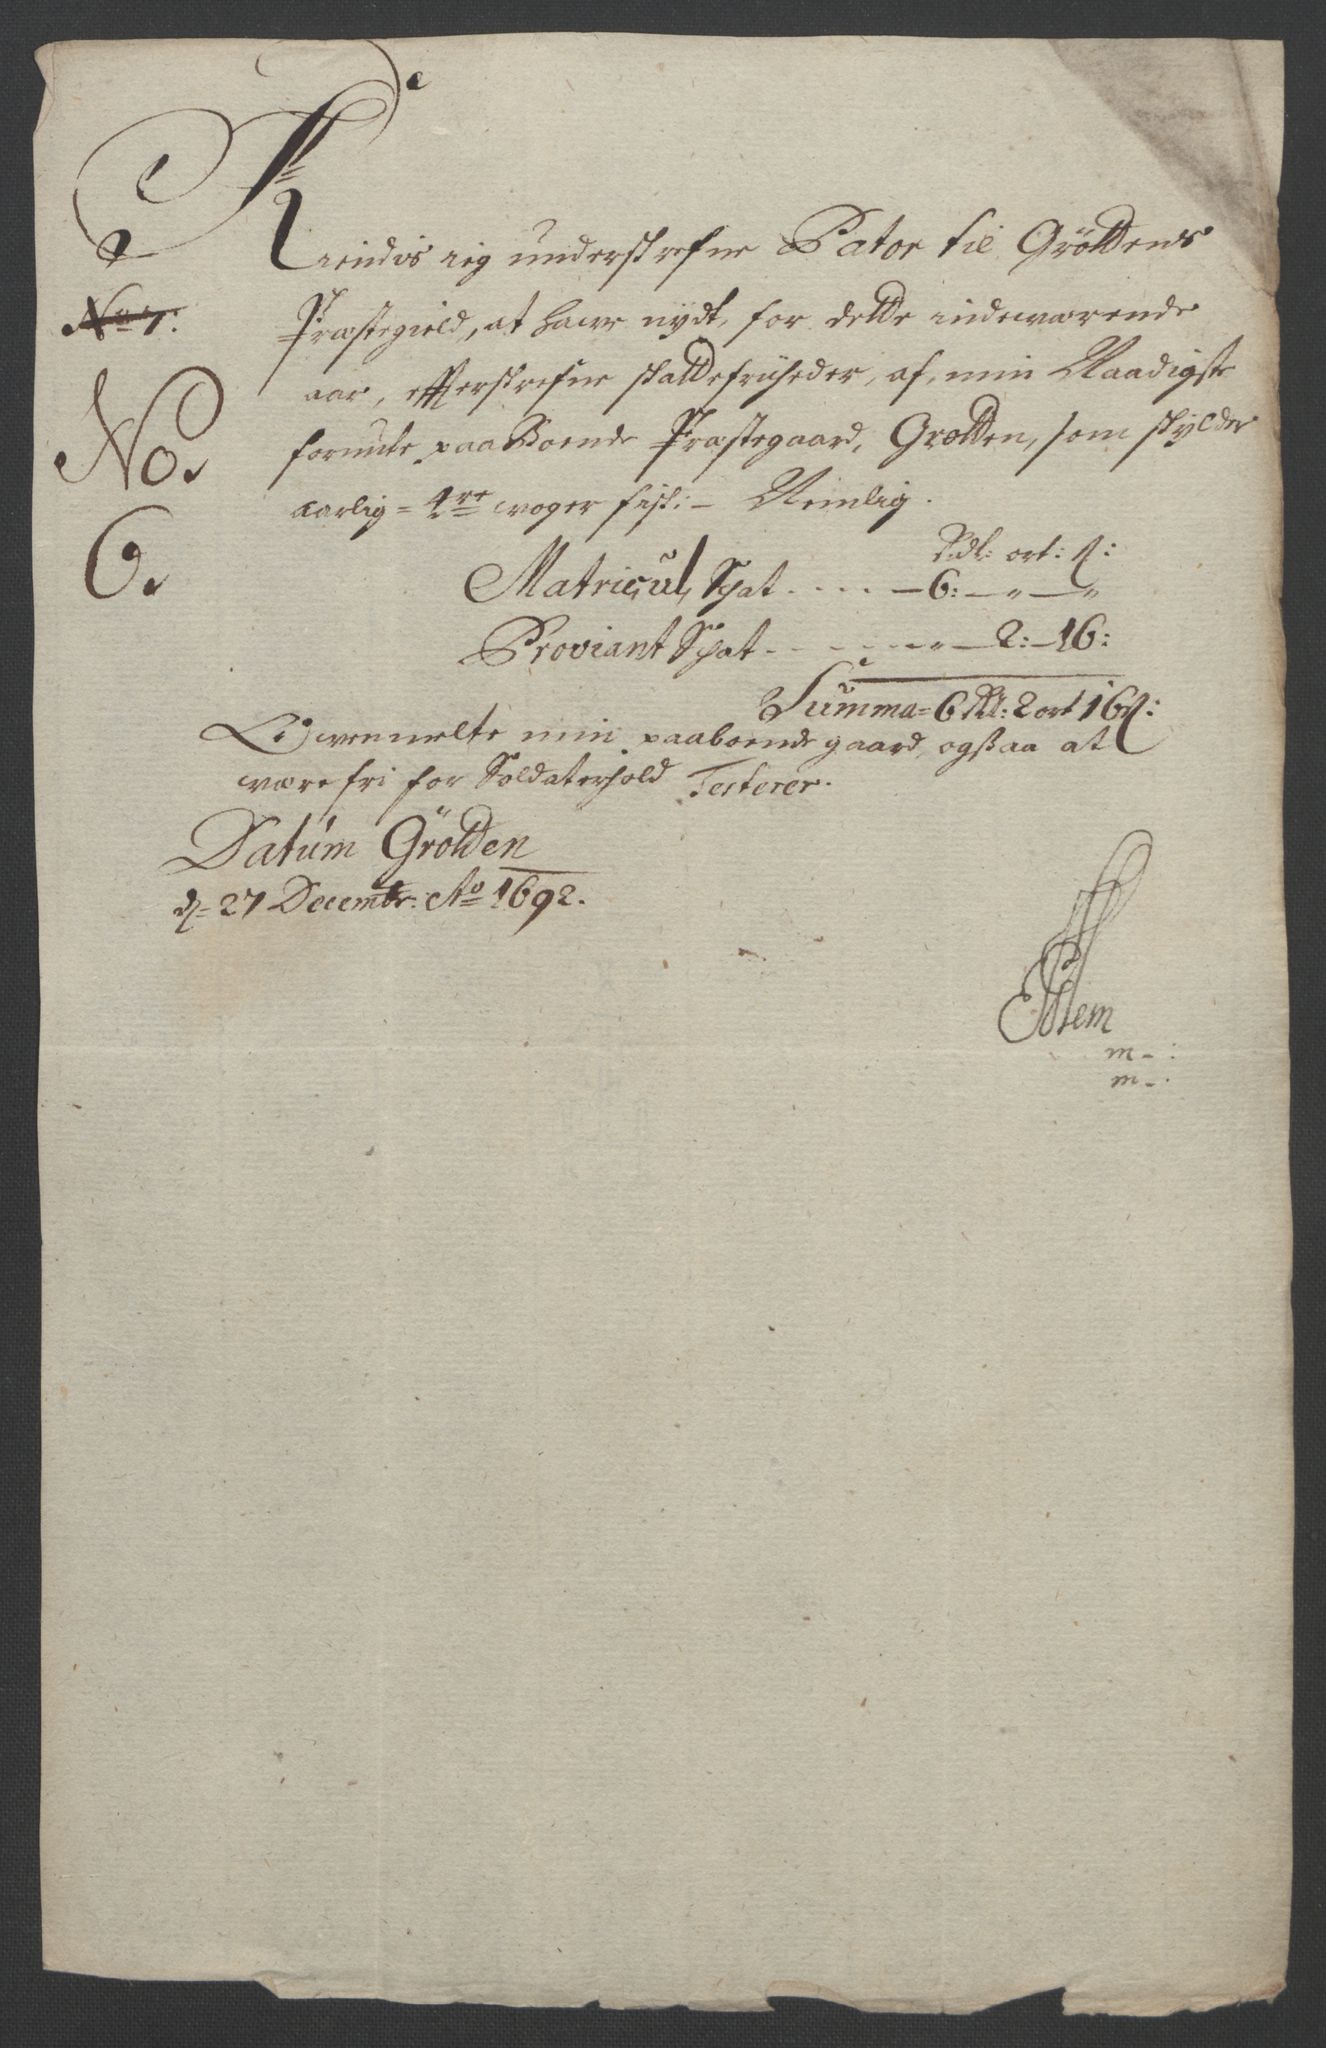 Kiendis ieg underskrefne Pator til Grötdens
No 7:
Præstegield, at hawe nydt, for dette indewærende
aar, efterskrefne skattefriiheder, af, min Naadigste
No.
forunte paaboende Præstegaard, Grøtten, som skylder
aarlig = 4re woger fisk: – Nemlig.
6.
Rdl: ort: ß:
Matricul, Schat . . . . — 6: — " — "
Proviant Schat . . . . . . " — 2: — 16:
Summa = 6 Rdl: 2 ort 16 ß:
Owenmelte min paaboende gaard, ogsaa at
were fri for Soldaterhold Testerer.
Datum Grötden
d= 27 Decembr: Ao 1692.
m – :
m – .